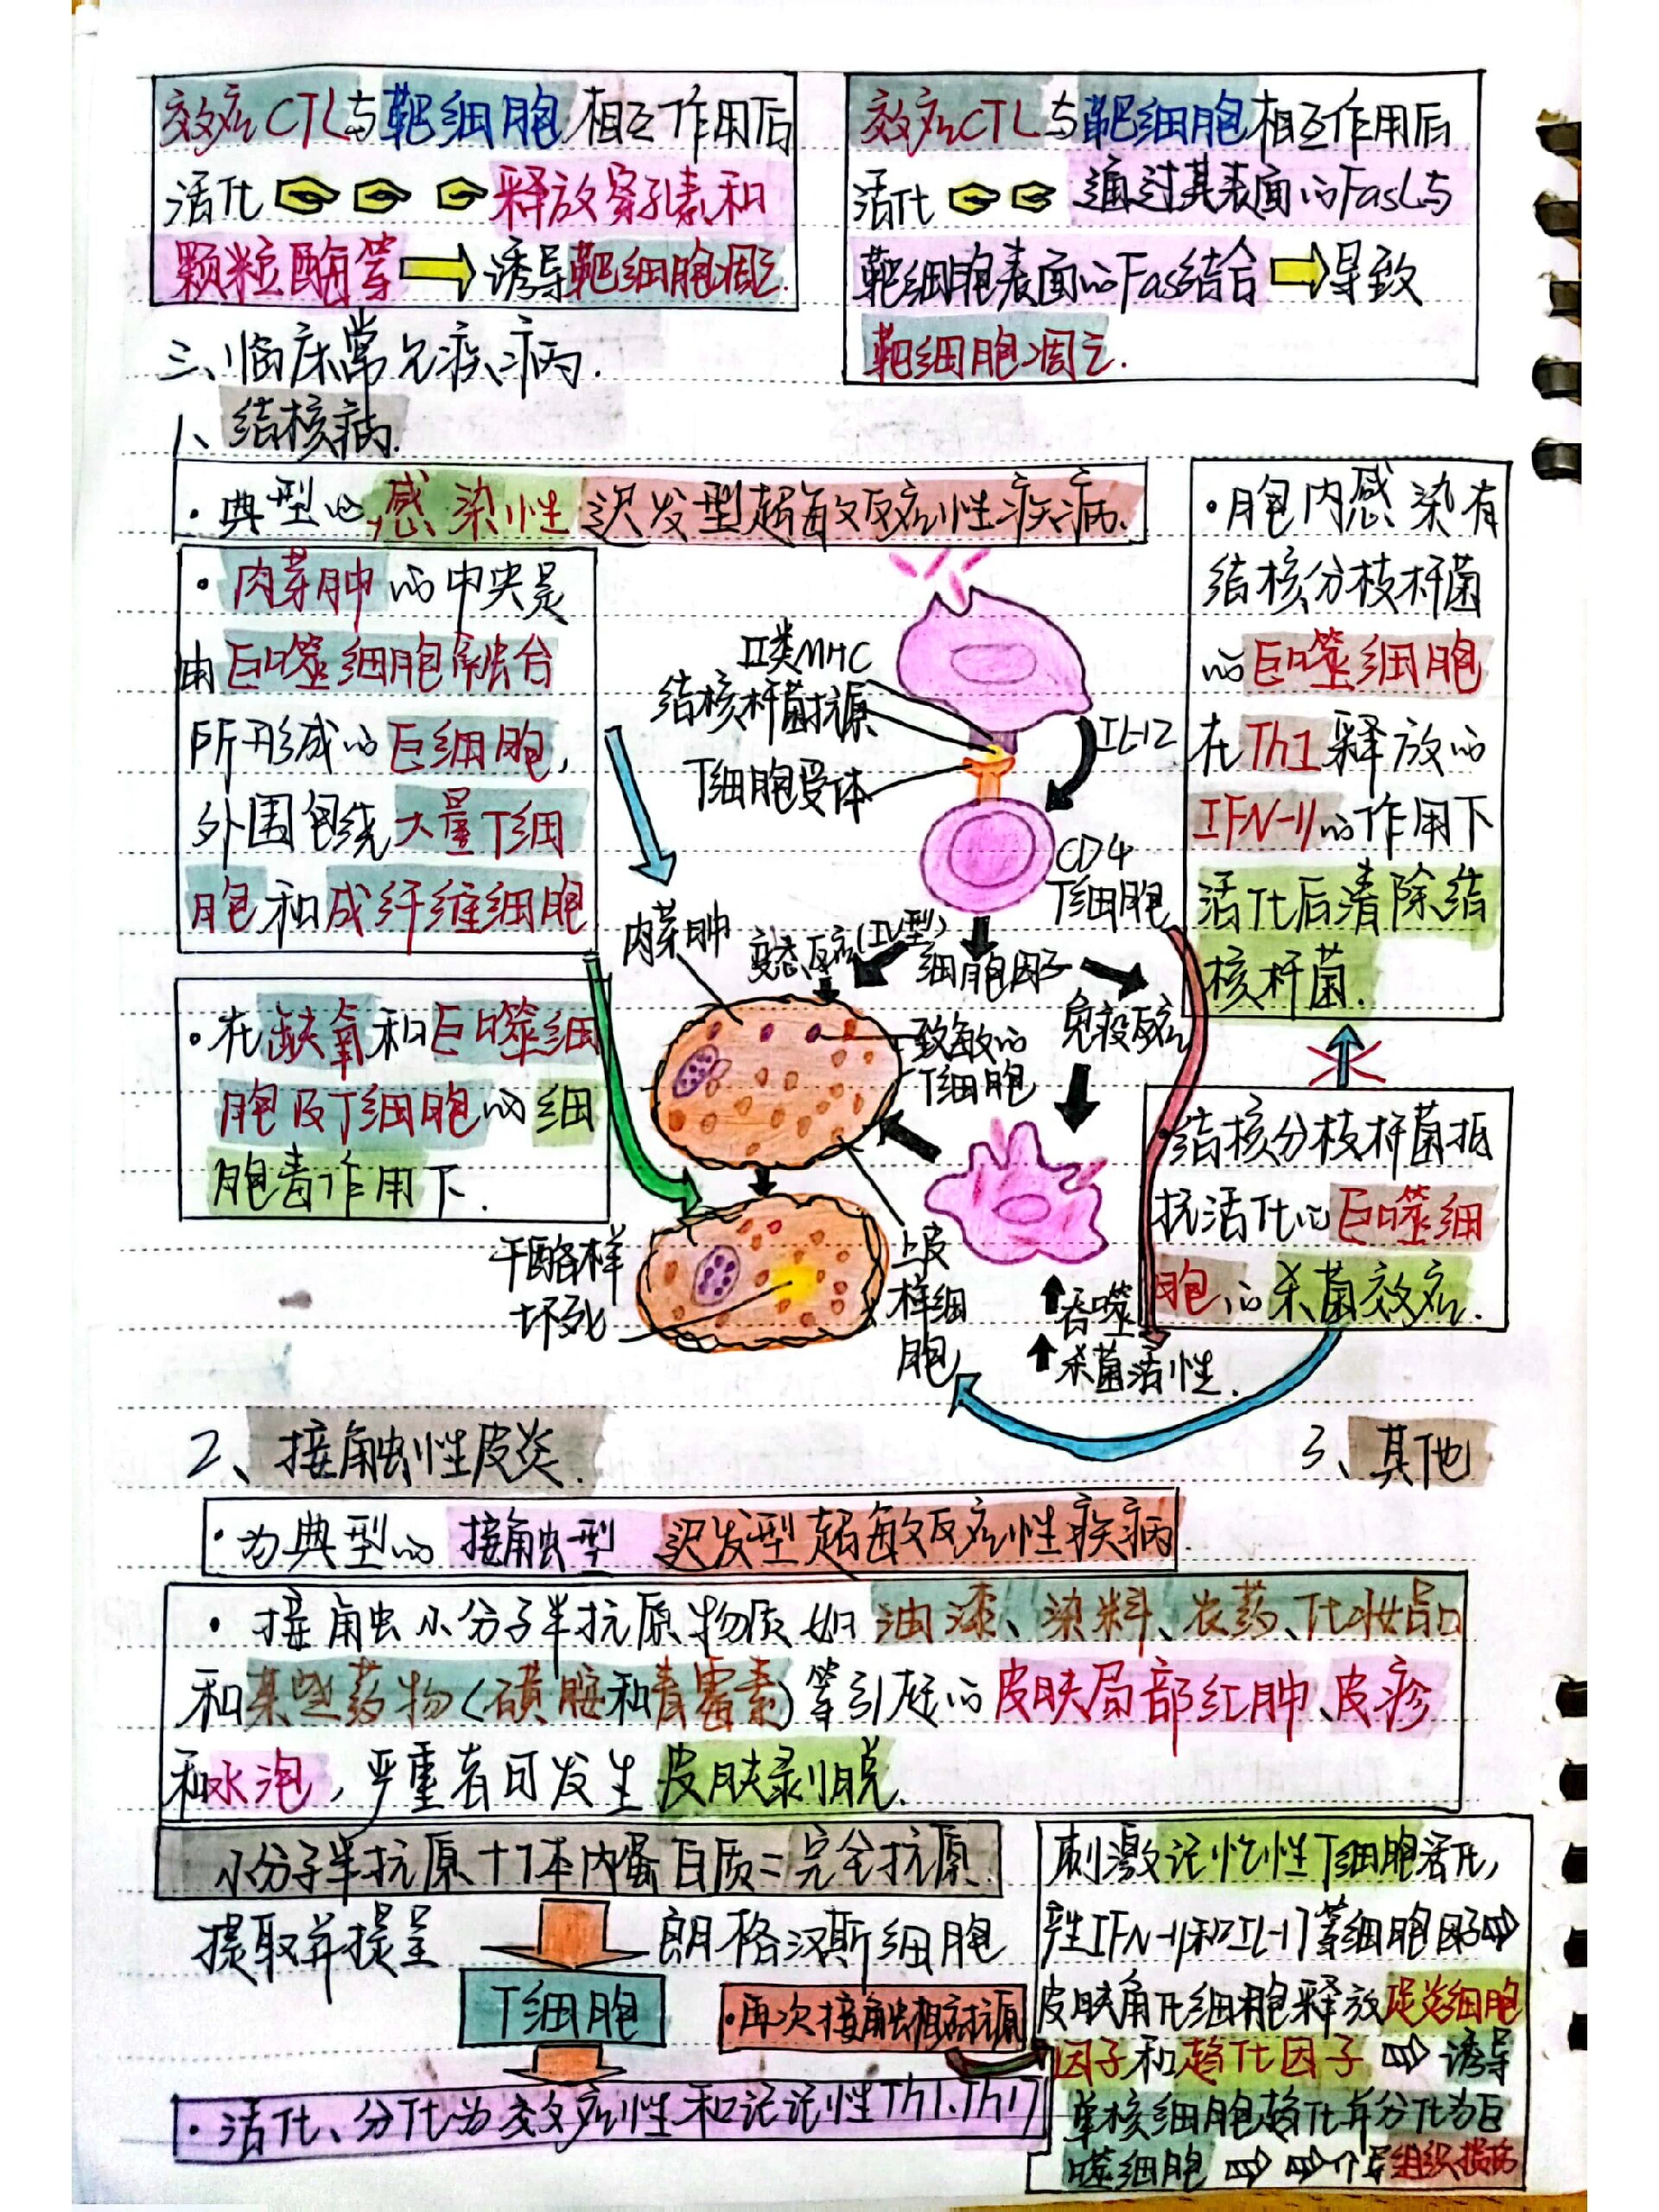 效应CTL与靶细胞相互作用后
活化 释放穿孔素和
颗粒酶等 诱导靶细胞凋亡.
效应CTL与靶细胞相互作用后
活化 通过其表面的FasL与
靶细胞表面的Fas结合 导致
靶细胞凋亡.
三、临床常见疾病.
1、结核病.
·典型的感染性迟发型超敏反应性疾病.
·肉芽肿的中央是
由巨噬细胞融合
所形成的巨细胞,
外围包绕大量T细
胞和成纤维细胞
·在缺氧和巨噬细
胞及T细胞的细
胞毒作用下.
II类MHC
结核杆菌抗原
T细胞受体
IL-12
CD4
T细胞
肉芽肿
变态反应(IV型)
细胞因子
免疫反应
致敏的
T细胞
干酪样
坏死
上皮
样细
胞
吞噬
杀菌活性.
·胞内感染有
结核分枝杆菌
的巨噬细胞
在Th1释放的
IFN-γ的作用下
活化后清除结
核杆菌.
·结核分枝杆菌抵
抗活化的巨噬细
胞的杀菌效应.
2、接触性皮炎.
3、其他
·为典型的接触型迟发型超敏反应性疾病
·接触小分子半抗原物质如油漆、染料、农药、化妆品
和某些药物(磺胺和青霉素)等引起的皮肤局部红肿、皮疹
和水泡,严重者可发生皮肤剥脱.
小分子半抗原+体内蛋白质=完全抗原.
提取并提呈 朗格汉斯细胞
T细胞
·再次接触相应抗原
·活化、分化为效应性和记记性Th1、Th17
刺激记忆性T细胞活化,
产生IFN-γ和IL-17等细胞因子
皮肤角化细胞释放促炎细胞
因子和趋化因子 诱导
单核细胞趋化并分化为巨
噬细胞 介导组织损伤